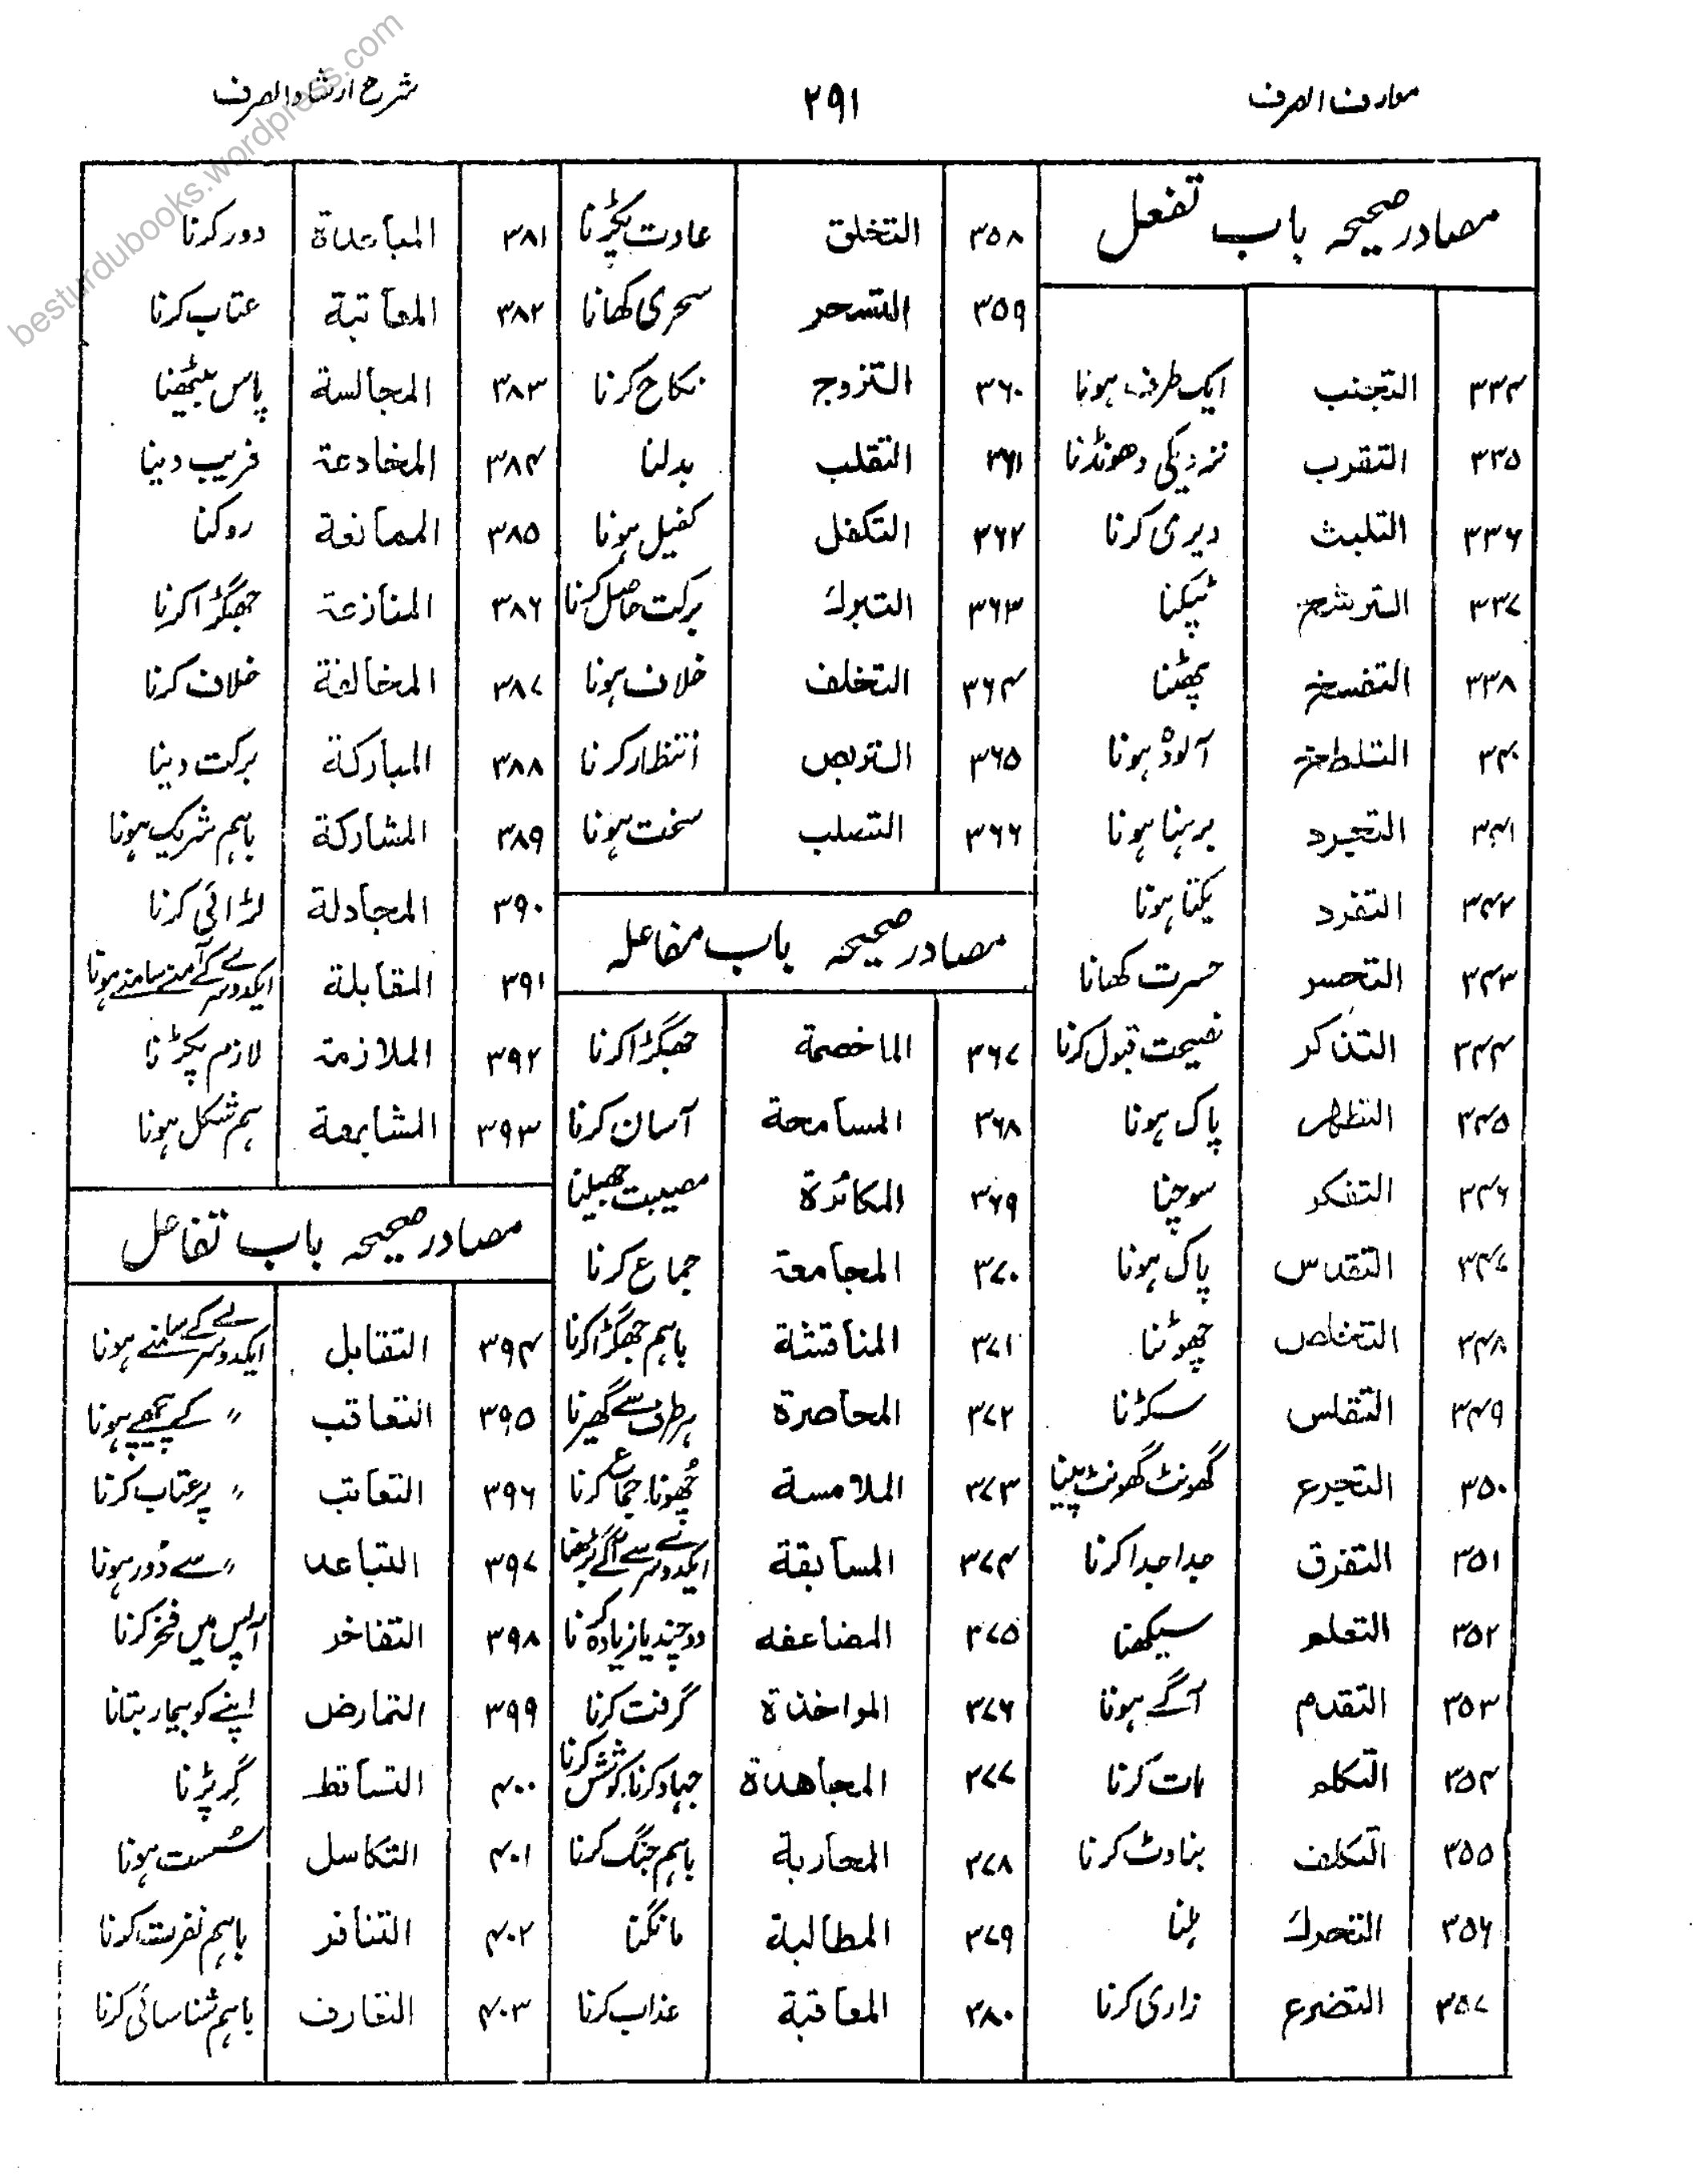 معارف الصرف
۲۹۱
شرح ارشاد الصرف
besturdubooks.wordpress.com
مصادر صحیحہ باب تفعل
۳۳۴ التجنب ایک طرف ہونا
۳۳۵ التقرب نزدیکی دھونڈنا
۳۳۶ التلبث دیری کرنا
۳۳۷ الترشح ٹپکنا
۳۳۸ التفسخ پھٹنا
۳۴۰ التلطخ آلودہ ہونا
۳۴۱ التجرد برہنا ہونا
۳۴۲ التفرد یکتا ہونا
۳۴۳ التحسر حسرت کھانا
۳۴۴ التذکر نصیحت قبول کرنا
۳۴۵ التطهر پاک ہونا
۳۴۶ التفکر سوچنا
۳۴۷ التقدس پاک ہونا
۳۴۸ التخلص چھوٹنا
۳۴۹ التقلس سکڑنا
۳۵۰ التجرع گھونٹ گھونٹ پینا
۳۵۱ التفرق جدا جدا کرنا
۳۵۲ التعلم سیکھنا
۳۵۳ التقدم آگے ہونا
۳۵۴ التکلم بات کرنا
۳۵۵ التکلف بناوٹ کرنا
۳۵۶ التحرك ہلنا
۳۵۷ التضرع زاری کرنا
۳۵۸ التخلق عادت پکڑنا
۳۵۹ التسحر سحری کھانا
۳۶۰ التزوج نکاح کرنا
۳۶۱ التقلب بدلنا
۳۶۲ التکفل کفیل ہونا
۳۶۳ التبرك برکت حاصل کرنا
۳۶۴ التخلف خلاف ہونا
۳۶۵ التربص انتظار کرنا
۳۶۶ التصلب سخت ہونا
مصادر صحیحہ باب مفاعلہ
۳۶۷ الماخصمة جھگڑا کرنا
۳۶۸ المسامحة آسان کرنا
۳۶۹ المکائدة مصیبت جھیلنا
۳۷۰ المجامعة جماع کرنا
۳۷۱ المناقشة باہم جھگڑا کرنا
۳۷۲ المحاصرة ہر طرف سے گھیرنا
۳۷۳ الملامسة چھونا، جماع کرنا
۳۷۴ المسابقة ایکدوسرے سے آگے بڑھنا
۳۷۵ المضاعفه دو چند یا زیادہ کرنا
۳۷۶ المواخذة گرفت کرنا
۳۷۷ المجاهدة جہاد کرنا، کوشش کرنا
۳۷۸ المحاربة باہم جنگ کرنا
۳۷۹ المطالبة مانگنا
۳۸۰ المعاقبة عذاب کرنا
۳۸۱ المباعدة دور کرنا
۳۸۲ المعاتبة عتاب کرنا
۳۸۳ المجالسة پاس بیٹھنا
۳۸۴ المخادعة فریب دینا
۳۸۵ الممانعة روکنا
۳۸۶ المنازعة جھگڑا کرنا
۳۸۷ المخالفة خلاف کرنا
۳۸۸ المبارکة برکت دینا
۳۸۹ المشارکة باہم شریک ہونا
۳۹۰ المجادلة لڑائی کرنا
۳۹۱ المقابلة ایکدوسرے کے آمنے سامنے ہونا
۳۹۲ الملازمة لازم پکڑنا
۳۹۳ المشابهة ہم شکل ہونا
مصادر صحیحہ باب تفاعل
۳۹۴ التقابل ایکدوسرے کے سامنے ہونا
۳۹۵ التعاقب 〃 کے پیچھے ہونا
۳۹۶ التعاتب 〃 پر عتاب کرنا
۳۹۷ التباعد 〃 سے دُور ہونا
۳۹۸ التفاخر آپس میں فخر کرنا
۳۹۹ التمارض اپنے کو بیمار بتانا
۴۰۰ التساقط گِر پڑنا
۴۰۱ التکاسل سُست ہونا
۴۰۲ التنافر باہم نفرت کرنا
۴۰۳ التعارف باہم شناسائی کرنا